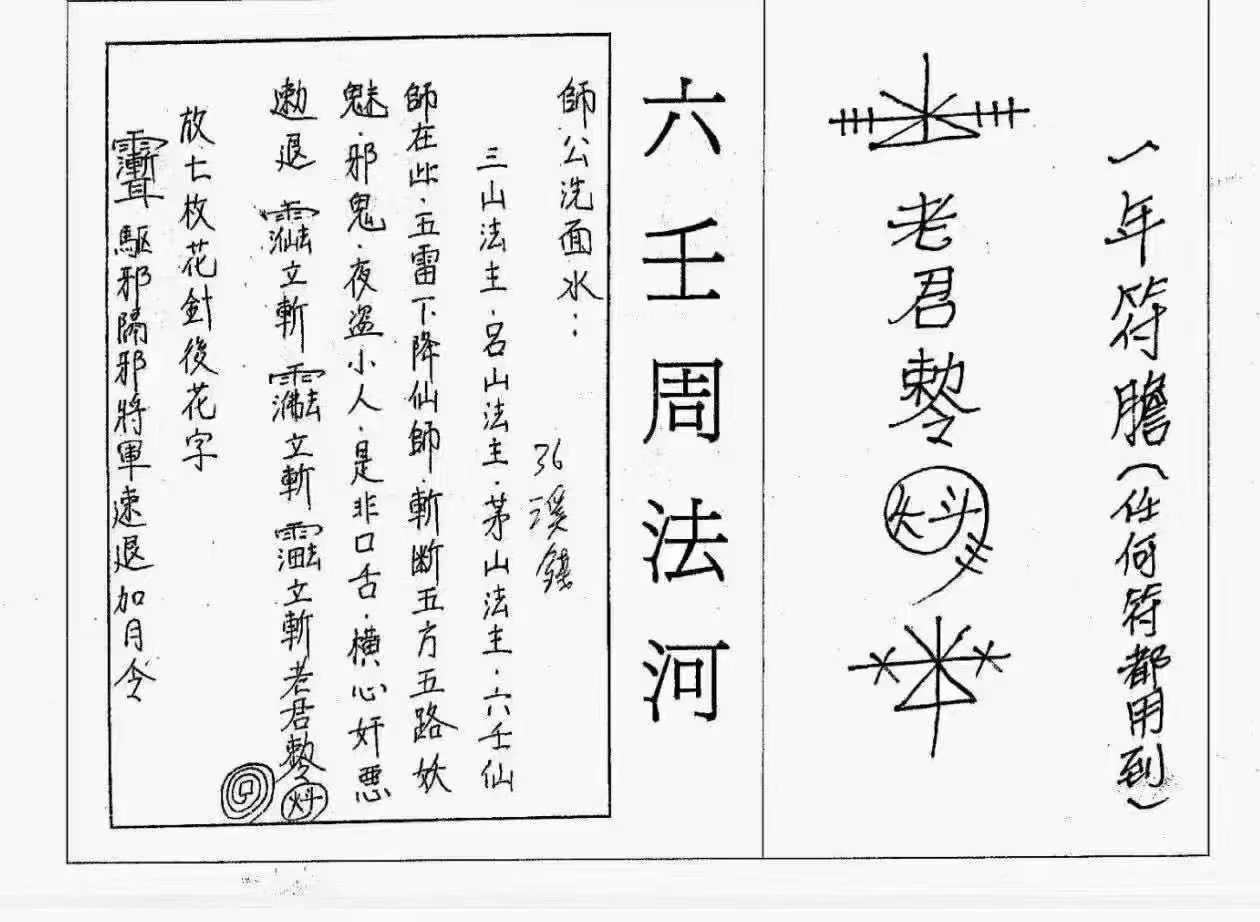 一年符膽(任何符都用到)
老君敕令
六壬周法河
師公洗面水:
36溪錢
三山法主.呂山法主.茅山法主.六壬仙
師在此.五雷下降仙師.斬斷五方五路妖
魅.邪鬼.夜盜小人.是非口舌.橫心奸惡
速退 立斬 立斬 立斬老君敕令
放七枚花針後花字
驅邪隔邪將軍速退加月令